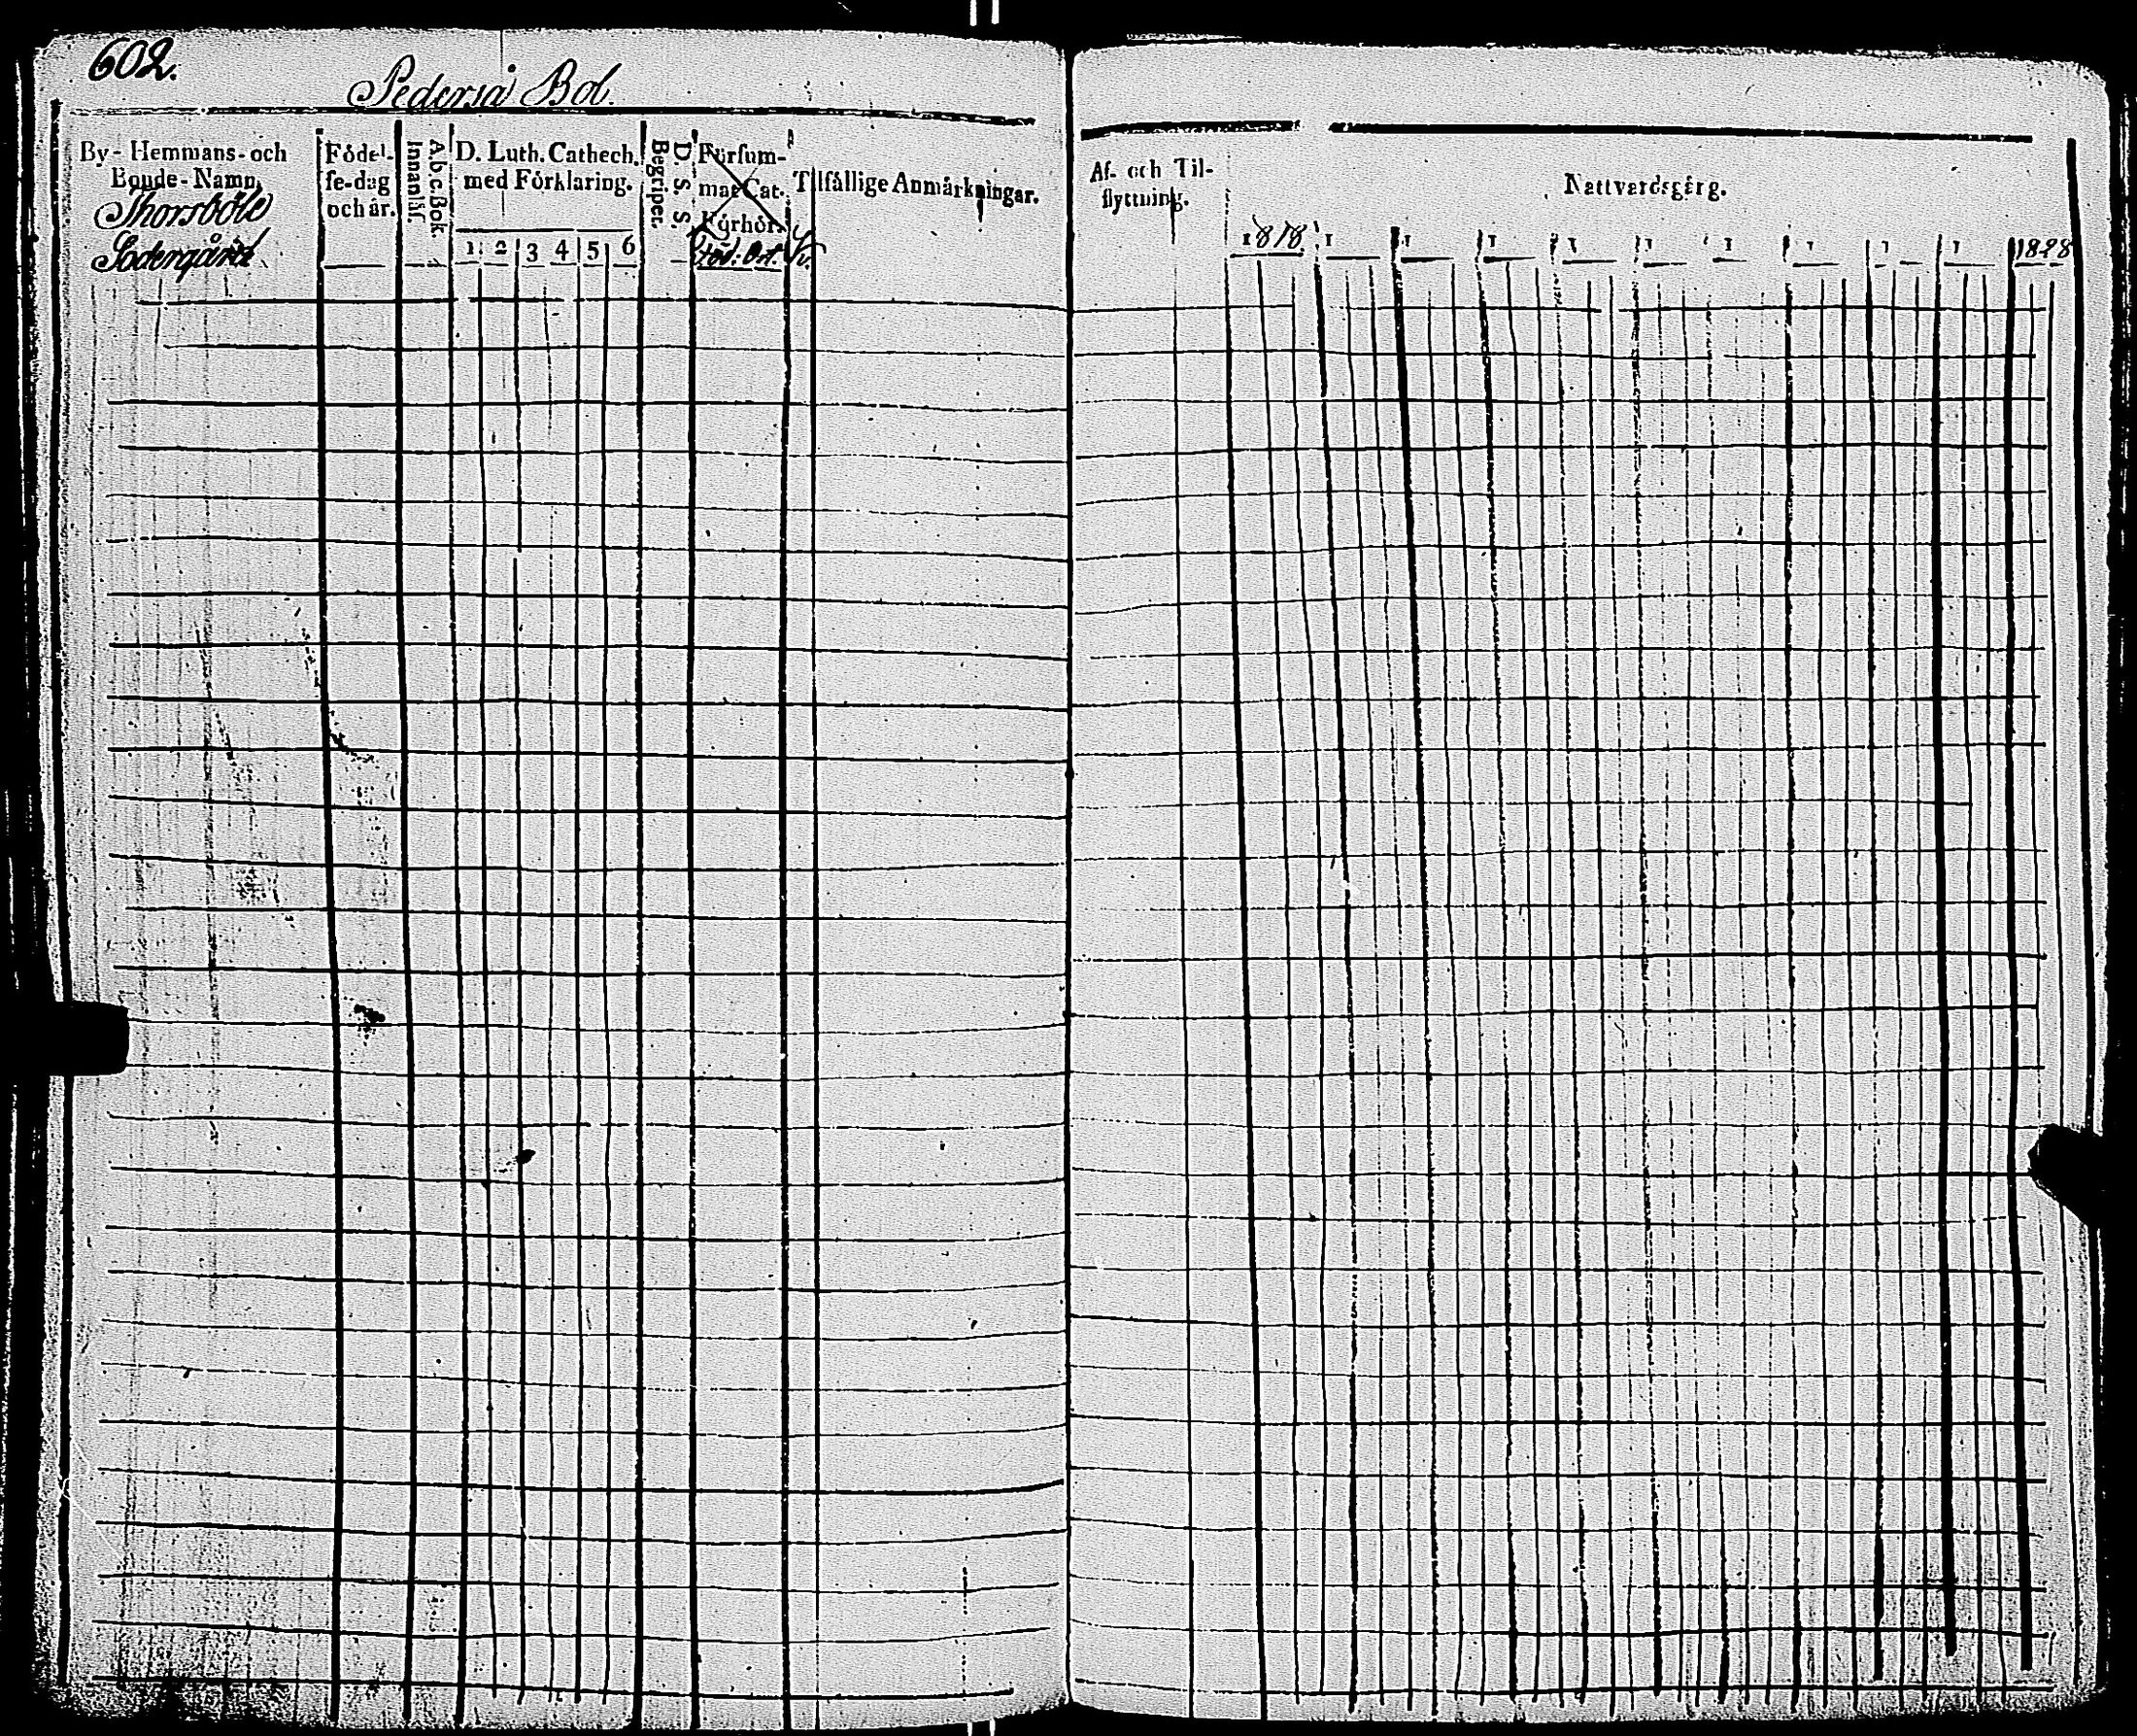 602.
Pederså Bol.
By- Hemmans- och Bonde-Namn,
Thorsböle
Södergård
Födel-
se-dag
och år.
A.b.c. Bok.
Innanläs.
D. Luth. Cathech.
med Förklaring.
1. 2 3 4 5 6
D. S. S.
Begriper.
Försum-
mat Cat.
Förhör.
Tilfällige Anmärkningar.
Af- och Til-
flyttning.
Nattvardsgång.
1818. 1 1 1 1 1 1 1 1 1 1828